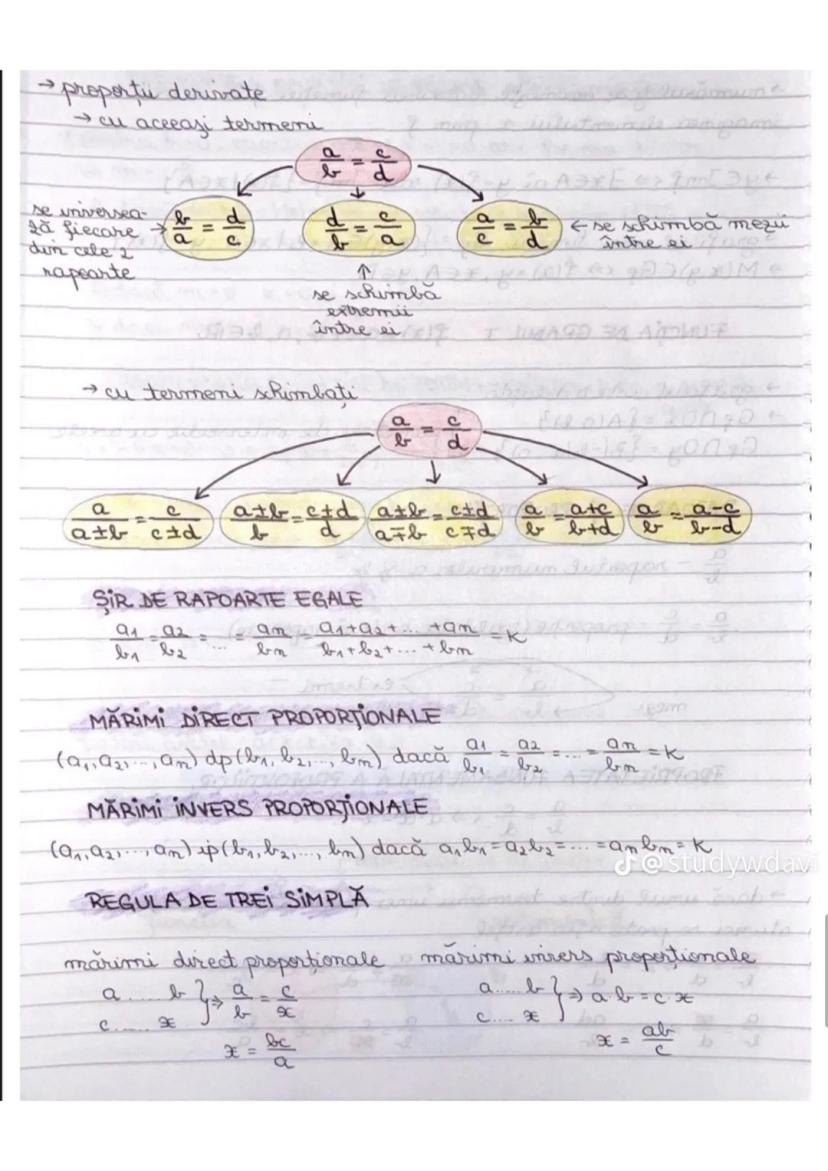 → proporții derivate
→ cu aceeași termeni
a/b = c/d
se inversea-
ză fiecare
din cele 2
rapoarte
→ b/a = d/c
d/b = c/a
a/c = b/d
← se schimbă mezii
între ei
↑
se schimbă
extremii
între ei
→ cu termeni schimbați
a/b = c/d
a/(a±b) = c/(c±d)
(a±b)/b = (c±d)/d
(a±b)/(a∓b) = (c±d)/(c∓d)
a/b = (a+c)/(b+d)
a/b = (a-c)/(b-d)
ȘIR DE RAPOARTE EGALE
a₁/b₁ = a₂/b₂ = ... = aₙ/bₙ = (a₁+a₂+...+aₙ)/(b₁+b₂+...+bₙ) = K
MĂRIMI DIRECT PROPORȚIONALE
(a₁,a₂,...,aₙ) dp (b₁,b₂,...,bₙ) dacă a₁/b₁ = a₂/b₂ = ... = aₙ/bₙ = K
MĂRIMI INVERS PROPORȚIONALE
(a₁,a₂,...,aₙ) ip (b₁,b₂,...,bₙ) dacă a₁b₁ = a₂b₂ = ... = aₙbₙ = K
@studywdavi
REGULA DE TREI SIMPLĂ
mărimi direct proporționale
a ..... b
c ..... x
} ⇒ a/b = c/x
x = bc/a
mărimi invers proporționale
a ..... b
c .... x
} ⇒ a·b = c·x
x = ab/c